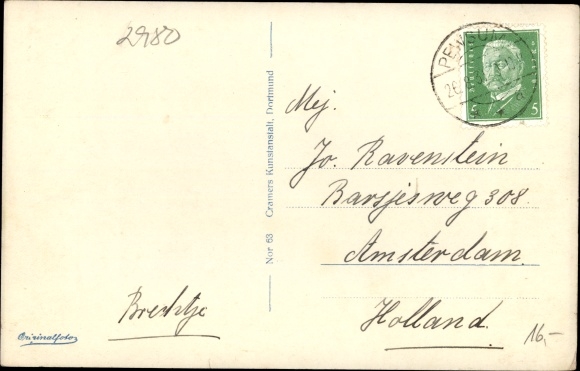 2980
Nor 63 Cramers Kunstanstalt, Dortmund
5 5
Mej.
Jo. Ravenstein
Barsjesweg 308.
Amsterdam
Holland.
Brechtje
Originalfoto
16,-